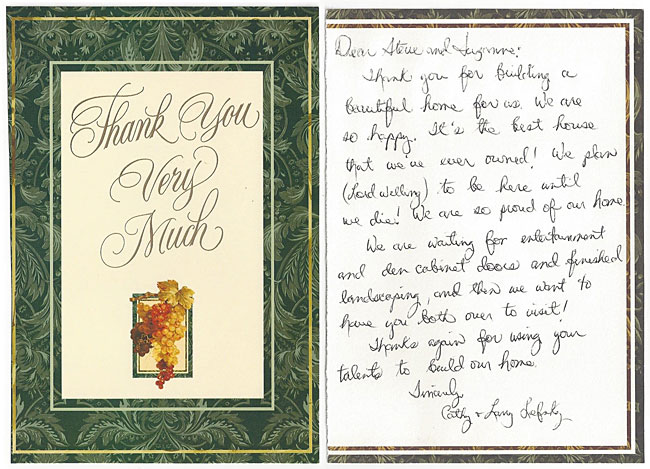 Thank You
Very
Much
Dear Steve and Suzanne:
Thank you for building a
beautiful home for us. We are
so happy. It's the best house
that we've ever owned! We plan
(Lord willing) to be here until
we die! We are so proud of our home.
We are waiting for entertainment
and den cabinet doors and finished
landscaping, and then we want to
have you both over to visit!
Thanks again for using your
talents to build our home.
Sincerely,
Cathy + Larry